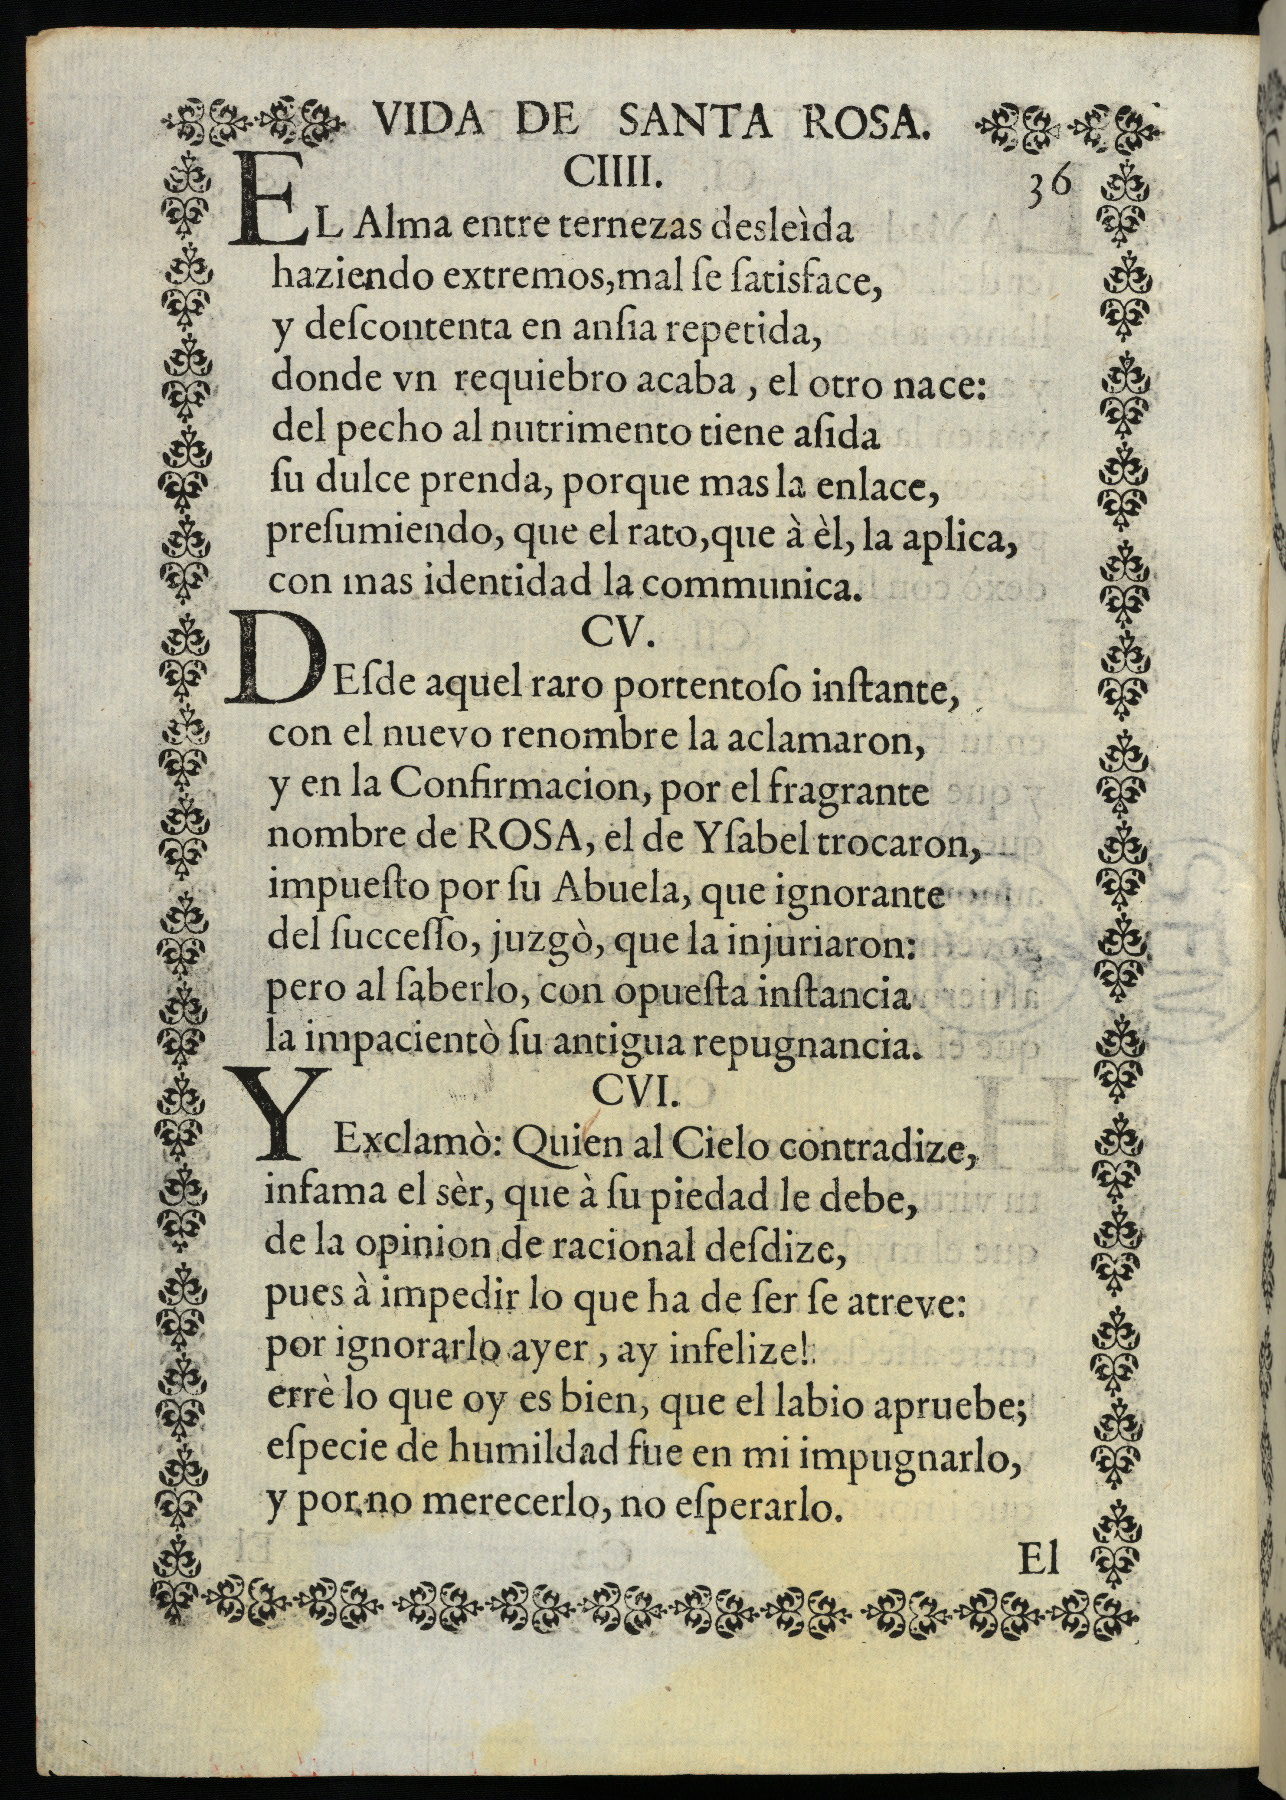 VIDA DE SANTA ROSA.
CIIII.
36
EL Alma entre ternezas desleìda
haziendo extremos,mal ſe ſatisface,
y deſcontenta en anſia repetida,
donde vn requiebro acaba , el otro nace:
del pecho al nutrimento tiene aſida
ſu dulce prenda, porque mas la enlace,
preſumiendo, que el rato,que à èl, la aplica,
con mas identidad la communica.
CV.
DEſde aquel raro portentoſo inſtante,
con el nuevo renombre la aclamaron,
y en la Confirmacion, por el fragrante
nombre de ROSA, el de Yſabel trocaron,
impueſto por ſu Abuela, que ignorante
del ſucceſſo, juzgò, que la injuriaron:
pero al ſaberlo, con opueſta inſtancia
la impacientò ſu antigua repugnancia.
CVI.
Y Exclamò: Quien al Cielo contradize,
infama el sèr, que à ſu piedad le debe,
de la opinion de racional deſdize,
pues à impedir lo que ha de ſer ſe atreve:
por ignorarlo ayer , ay infelize!
errè lo que oy es bien, que el labio apruebe;
eſpecie de humildad fue en mi impugnarlo,
y por no merecerlo, no eſperarlo.
El